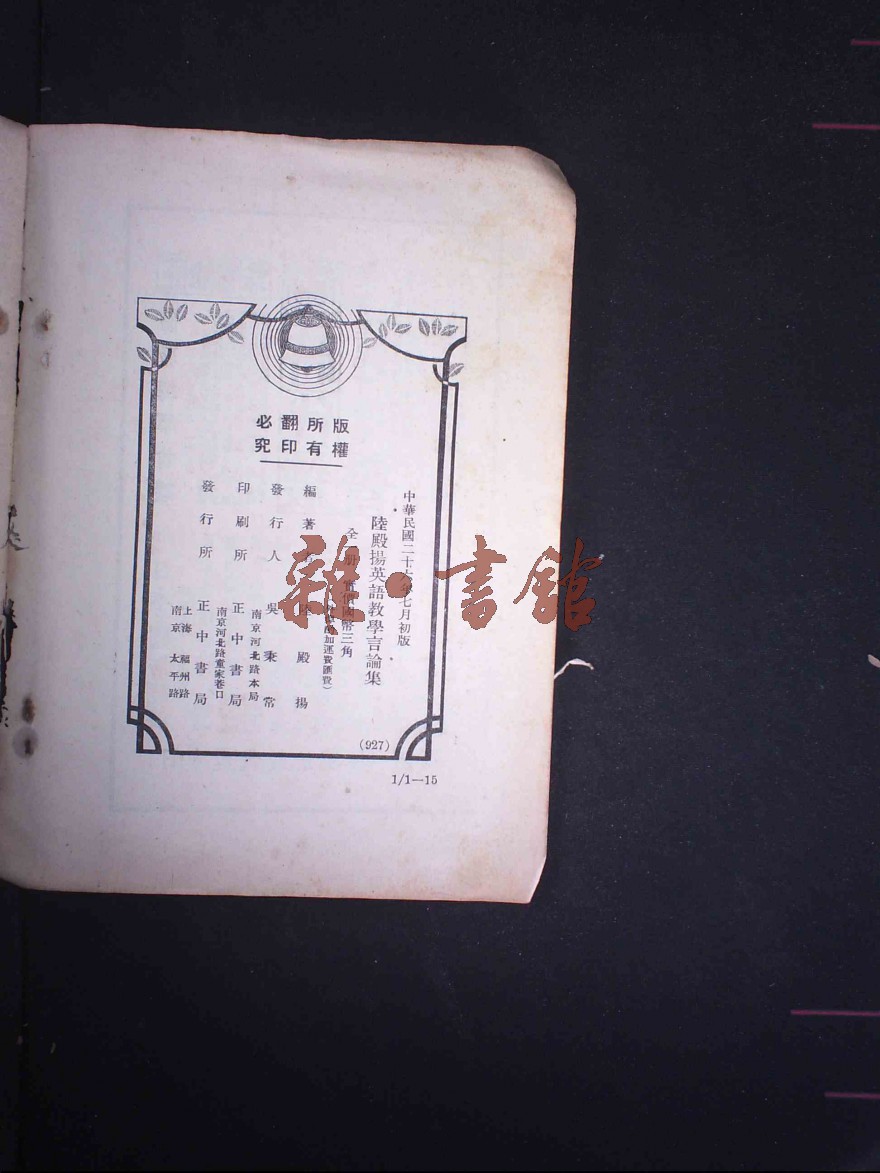 版權
所有
翻印
必究
中華民國二十六年七月初版
陸殿揚英語教學言論集
全 冊 實價國幣三角
加運費匯費)
編著 陸殿揚
發行人 吳秉常
南京河北路本局
印刷所 正中書局
南京河北路童家巷口
發行所 正中書局
上海福州路
南京太平路
(927)
1/1—15
雜·書館